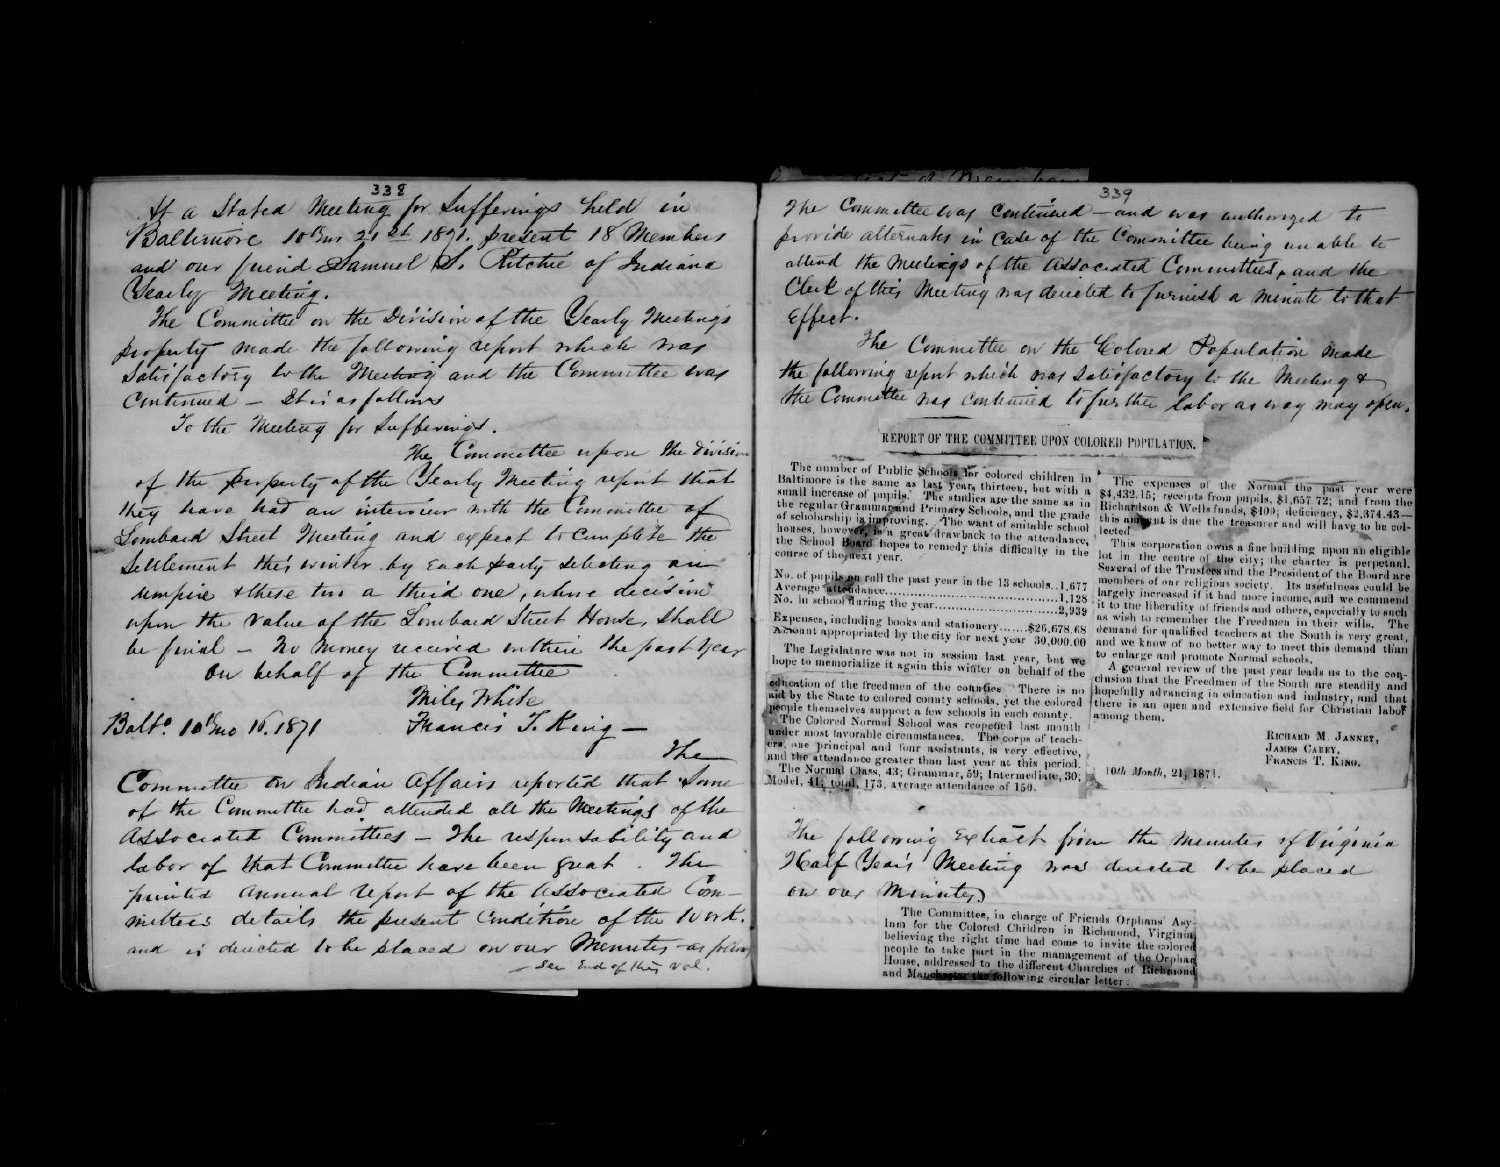 338
At a Stated Meeting for Sufferings held in
Baltimore 10th mo 21st 1871. present 18 Members
and our friend Samuel S. Ritchie of Indiana
Yearly Meeting.
The Committee on the Division of the Yearly Meetings
property made the following report which was
satisfactory to the Meeting and the Committee was
continued – It is as follows
To the Meeting for Sufferings.
The Committee upon the division
of the property of the Yearly Meeting report that
they have had an interview with the Committee of
Lombard Street Meeting and expect to complete the
Settlement this winter by each party selecting an
umpire & these two a third one, whose decision
upon the value of the Lombard Street House, shall
be final – No money received within the past year
On behalf of the Committee
Miles White
Balto. 10th mo 16. 1871 Francis T. King –
The
Committee on Indian Affairs reported that Some
of the Committee had attended all the Meetings of the
Associated Committees – The responsability and
labor of that Committee have been great. The
printed annual report of the Associated Com-
mittees details the present Condition of the work.
and is directed to be placed on our Minutes as follows
– See End of this Vol.
339
The Committee was continued – and was authorized to
provide alternates in case of the Committee being unable to
attend the Meetings of the Associated Committees, and the
Clerk of this Meeting was directed to furnish a minute to that
effect.
The Committee on the Colored Population made
the following report which was satisfactory to the Meeting &
the Committee was continued to further labor as way may open.
REPORT OF THE COMMITTEE UPON COLORED POPULATION.
The number of Public Schools for colored children in
Baltimore is the same as last year, thirteen, but with a
small increase of pupils. The studies are the same as in
the regular Grammar and Primary Schools, and the grade
of scholarship is improving. The want of suitable school
houses, however, is a great drawback to the attendance,
the School Board hopes to remedy this difficulty in the
course of the next year.
No. of pupils on roll the past year in the 13 schools..1,677
Average attendance...1,128
No. in school during the year...2,939
Expenses, including books and stationery.......$26,678.68
Amount appropriated by the city for next year 30,000.00
The Legislature was not in session last year, but we
hope to memorialize it again this winter on behalf of the
education of the freedmen of the counties There is no
aid by the State to colored county schools, yet the colored
people themselves support a few schools in each county.
The Colored Normal School was reopened last month
under most favorable circumstances. The corps of teach-
ers, one principal and four assistants, is very effective,
and the attendance greater than last year at this period.
The Normal Class, 43; Grammar, 59; Intermediate, 30;
Model, 41; total, 173, average attendance of 150.
The expenses of the Normal the past year were
$4,432.15; receipts from pupils, $1,657 72; and from the
Richardson & Wells funds, $400; deficiency, $2,374.43—
this amount is due the treasurer and will have to be col-
lected
This corporation owns a fine building upon an eligible
lot in the centre of the city; the charter is perpetual.
Several of the Trustees and the President of the Board are
members of our religious society. Its usefulness could be
largely increased if it had more income, and we commend
it to the liberality of friends and others, especially to such
as wish to remember the Freedmen in their wills. The
demand for qualified teachers at the South is very great,
and we know of no better way to meet this demand than
to enlarge and promote Normal schools.
A general review of the past year leads us to the con-
clusion that the Freedmen of the South are steadily and
hopefully advancing in education and industry, and that
there is an open and extensive field for Christian labor
among them.
RICHARD M. JANNEY,
JAMES CAREY,
FRANCIS T. KING.
10th Month, 21, 1871.
The following Extract from the Minutes of Virginia
Half Year's Meeting was directed to be placed
on our Minutes
The Committee, in charge of Friends Orphans' Asy-
lum for the Colored Children in Richmond, Virginia,
believing the right time had come to invite the colored
people to take part in the management of the Orphan
House, addressed to the different Churches of Richmond
and Manchester the following circular letter: